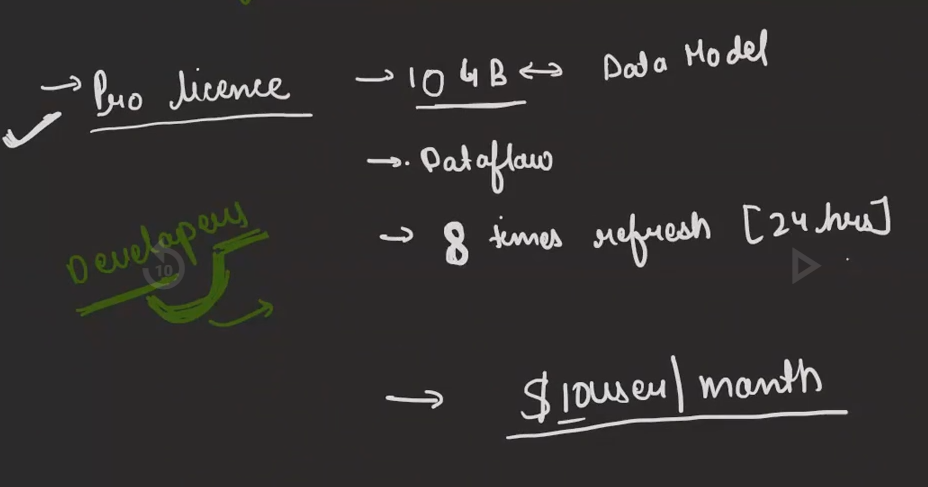 → Pro licence → 10 GB ↔ Data Model
→. Dataflow
→ 8 times refresh [24 hrs]
Developers
10
→ $10user/month